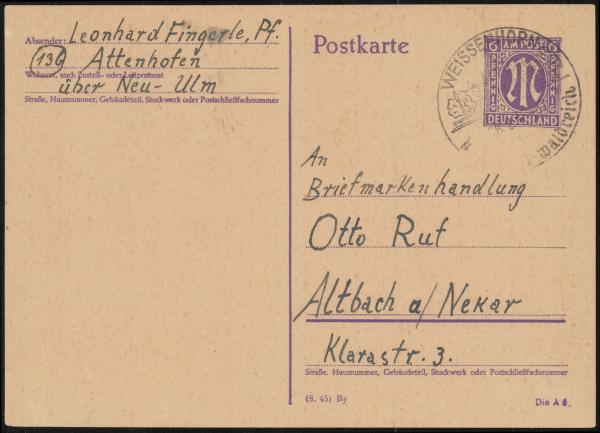 Absender: Leonhard Fingerle, Pf.
(13b) Attenhofen
Wohnort, auch Zustell- oder Leitpostamt
über Neu-Ulm
Straße, Hausnummer, Gebäudeteil, Stockwerk oder Postschließfachnummer
Postkarte
WEISSENHORN
waldreich
6 AM POST 6
PFENNIG PFENNIG
M
DEUTSCHLAND
An
Briefmarkenhandlung
Otto Ruf
Altbach a/Nekar
Klarastr. 3.
Straße, Hausnummer, Gebäudeteil, Stockwerk oder Postschließfachnummer
(8. 45) By
Din A 6.